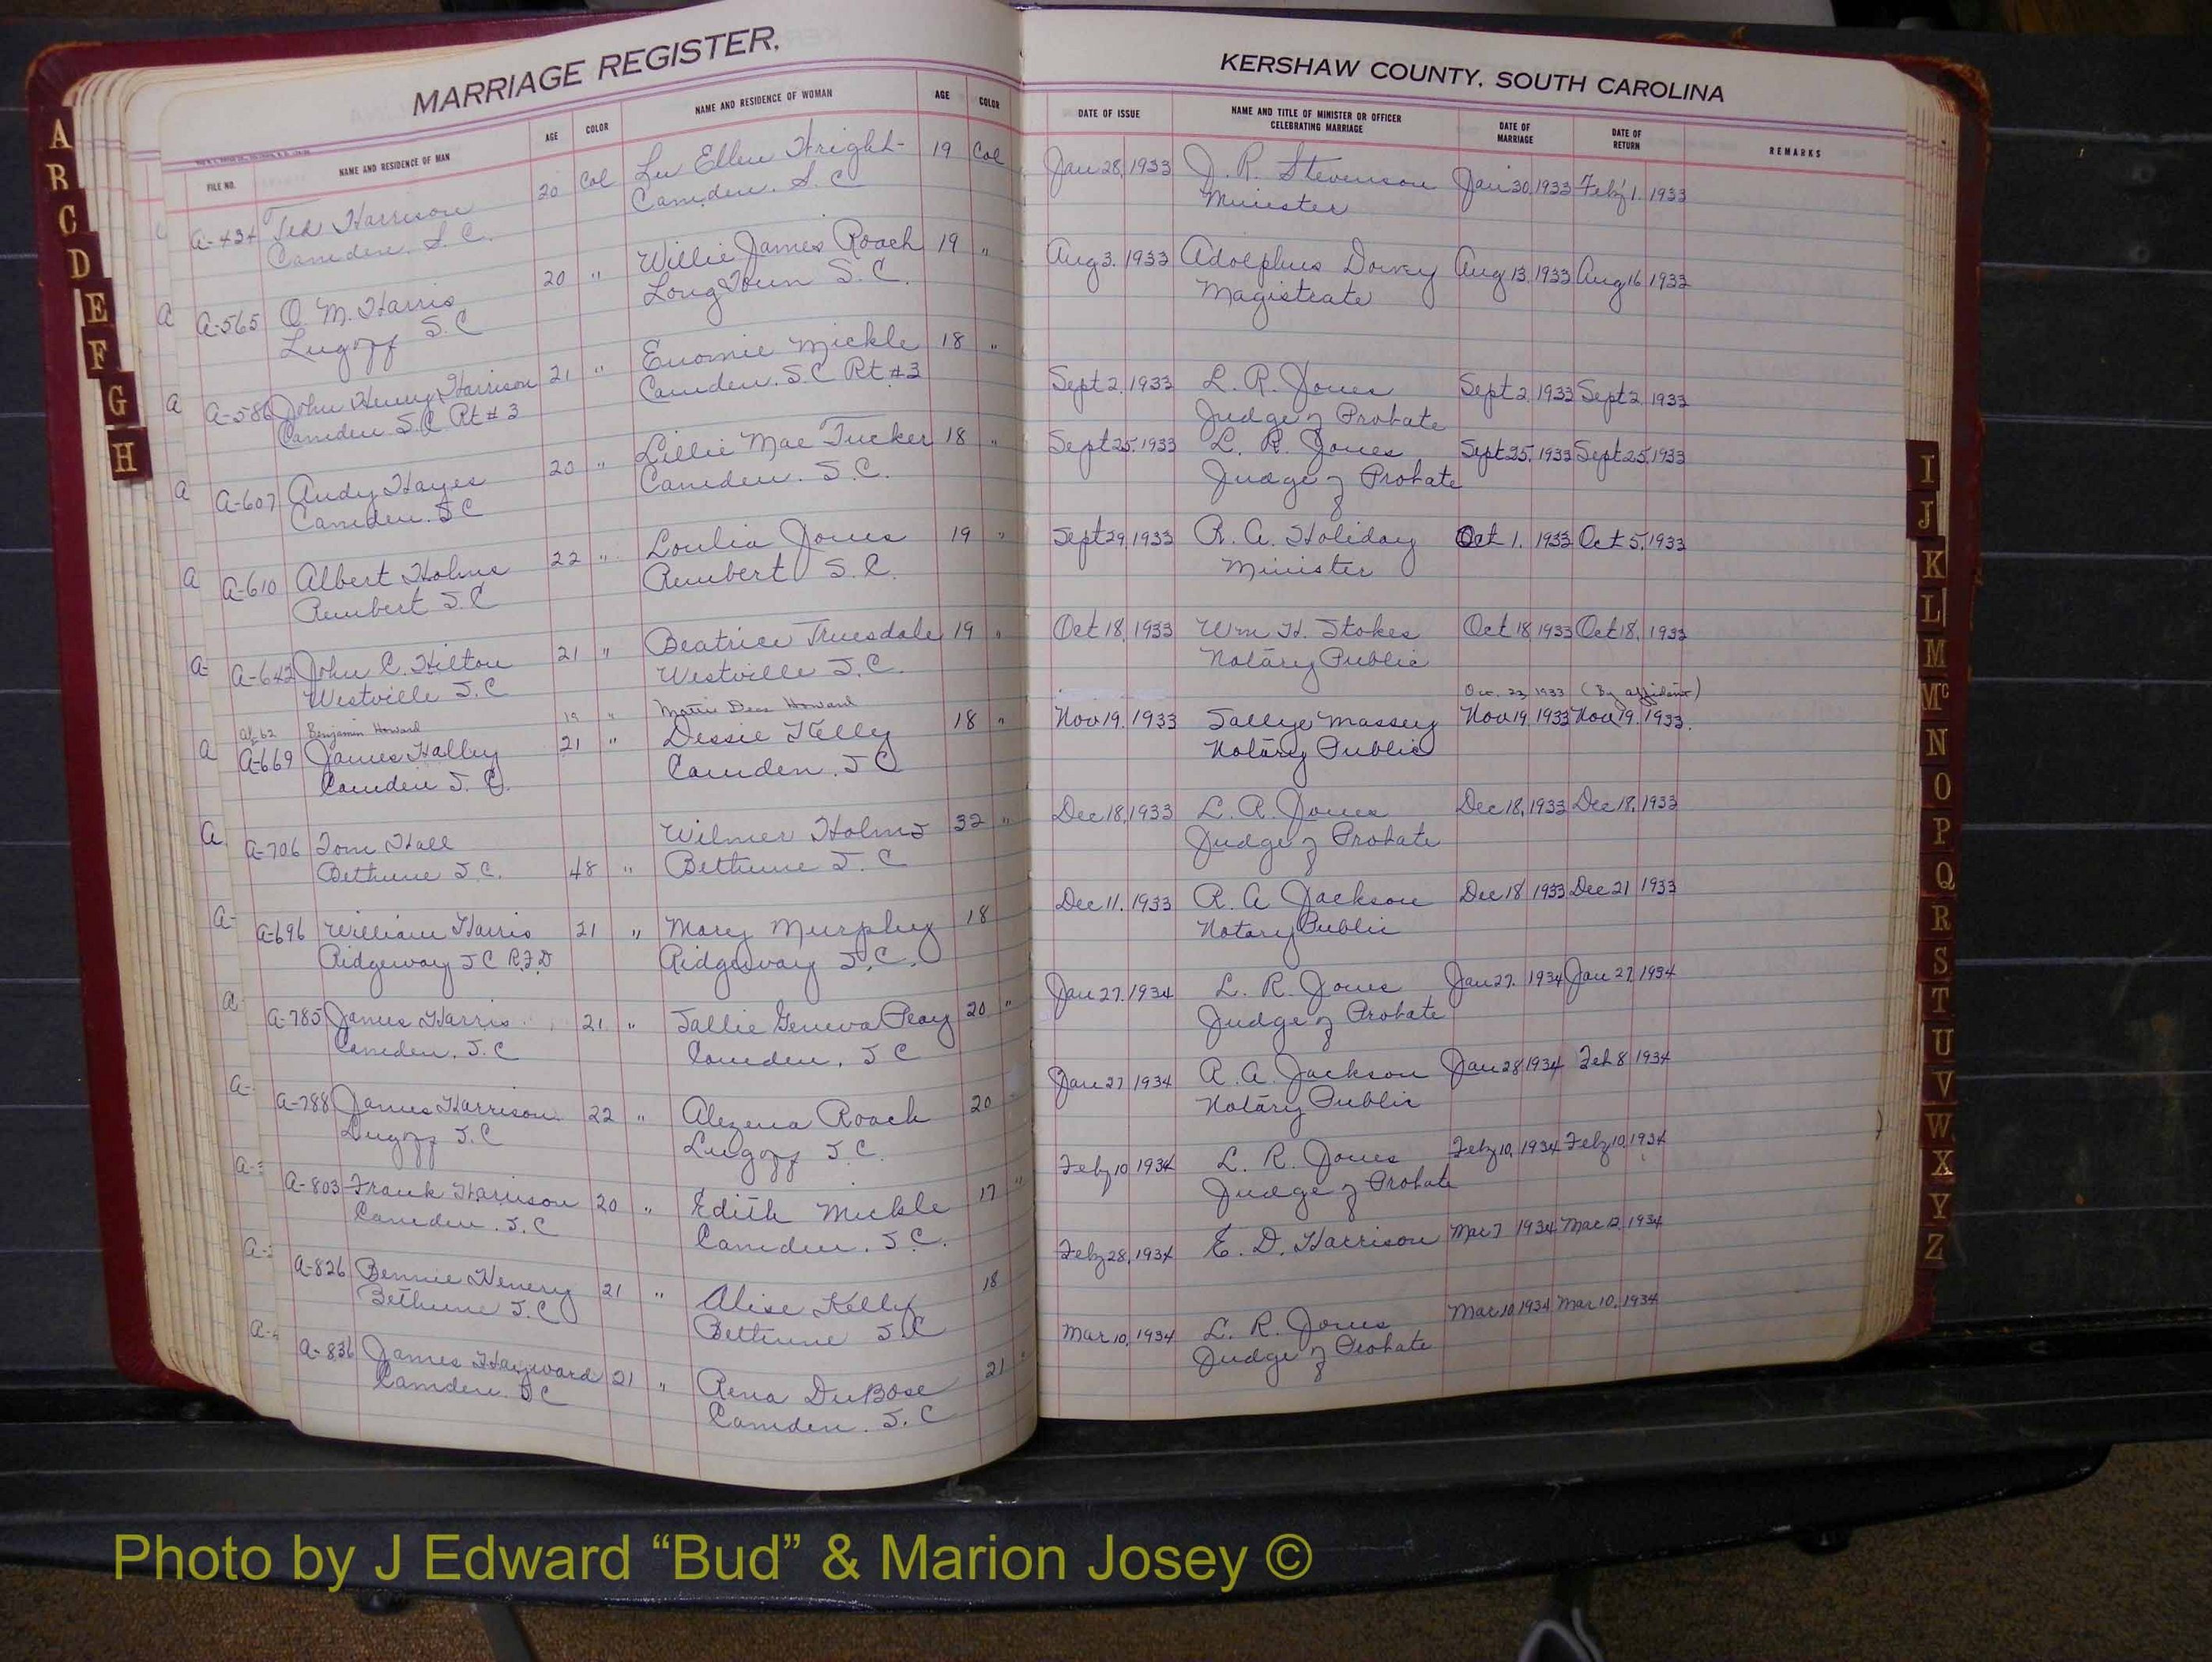 MARRIAGE REGISTER.
FILE NO. NAME AND RESIDENCE OF MAN AGE COLOR NAME AND RESIDENCE OF WOMAN AGE COLOR
A-434 Ted Harrison 20 Col Lu Ellen Wright 19 Col
Camden. S. C. Camden. S. C
A-565 O. M. Harris 20 " Willie James Roach 19 "
Lugoff S. C Long Town S. C.
A-586 John Henry Harrison 21 " Euomie Mickle 18 "
Camden S. C Rt # 3 Camden. S. C Rt #3
A-607 Andy Hayes 20 " Lillie Mae Tucker 18 "
Camden. S C Camden. S. C.
A-610 Albert Holms 22 " Loulia Jones 19 "
Rembert S. C Rembert S. C.
A-642 John C. Hilton 21 " Beatrice Truesdale 19 "
Westville S. C Westville S. C.
Benjamin Howard 19 " Mattie Dear Howard
A-669 James Halley 21 " Dessie Kelly 18 "
Camden S. C. Camden. S C
A-706 Tom Hall Wilmer Holms 32 "
Bethune S. C. 48 " Bethune S. C
A-696 William Harris 21 " Mary Murphy 18
Ridgeway S C R.F.D Ridgeway S. C.
A-785 James Harris 21 " Sallie Geneva Peay 20 "
Camden. S. C Camden. S C
A-788 James Harrison 22 " Alezena Roach 20
Lugoff S. C Lugoff S. C.
A-803 Frank Harrison 20 " Edith Mickle 17 "
Camden. S. C Camden. S. C.
A-826 Bennie Henery 21 " Alise Kelly 18
Bethune S. C Bethune S. C
A-836 James Hayward 21 " Rena DuBose 21 "
Camden. S C Camden. S. C
KERSHAW COUNTY, SOUTH CAROLINA
DATE OF ISSUE NAME AND TITLE OF MINISTER OR OFFICER CELEBRATING MARRIAGE DATE OF MARRIAGE DATE OF RETURN REMARKS
Jan 28, 1933 J. R. Stevenson Jan 30, 1933 Feb'y 1. 1933
Minister
Aug 3. 1933 Adolphus Dowey Aug 13, 1933 Aug 16 1933
Magistrate
Sept 2, 1933 L. R. Jones Sept 2, 1933 Sept 2, 1933
Judge of Probate
Sept 25, 1933 L. R. Jones Sept 25, 1933 Sept 25, 1933
Judge of Probate
Sept 29, 1933 R. A. Holiday Oct 1. 1933 Oct 5, 1933
Minister
Oct 18, 1933 Wm H. Stokes Oct 18, 1933 Oct 18, 1933
Notary Public
Dec. 23, 1933 (By affidavit)
Nov 19. 1933 Sallye Massey Nov 19, 1933 Nov 19. 1933.
Notary Public
Dec 18, 1933 L. R. Jones Dec 18, 1933 Dec 18, 1933
Judge of Probate
Dec 11. 1933 R. A Jackson Dec 18 1933 Dec 21 1933
Notary Public
Jan 27. 1934 L. R. Jones Jan 27. 1934 Jan 27 1934
Judge of Probate
Jan 27 1934 R. A. Jackson Jan 28 1934 Feb 8 1934
Notary Public
Feby 10 1934 L. R. Jones Feby 10, 1934 Feby 10, 1934
Judge of Probate
Feby 28, 1934 E. D. Harrison Mar 7 1934 Mar 12, 1934
Mar 10, 1934 L. R. Jones Mar 10 1934 Mar 10, 1934
Judge of Probate
A
B
C
D
E
F
G
H
I
J
K
L
M
Mc
N
O
P
Q
R
S
T
U
V
W
X
Y
Z
Photo by J Edward “Bud” & Marion Josey ©